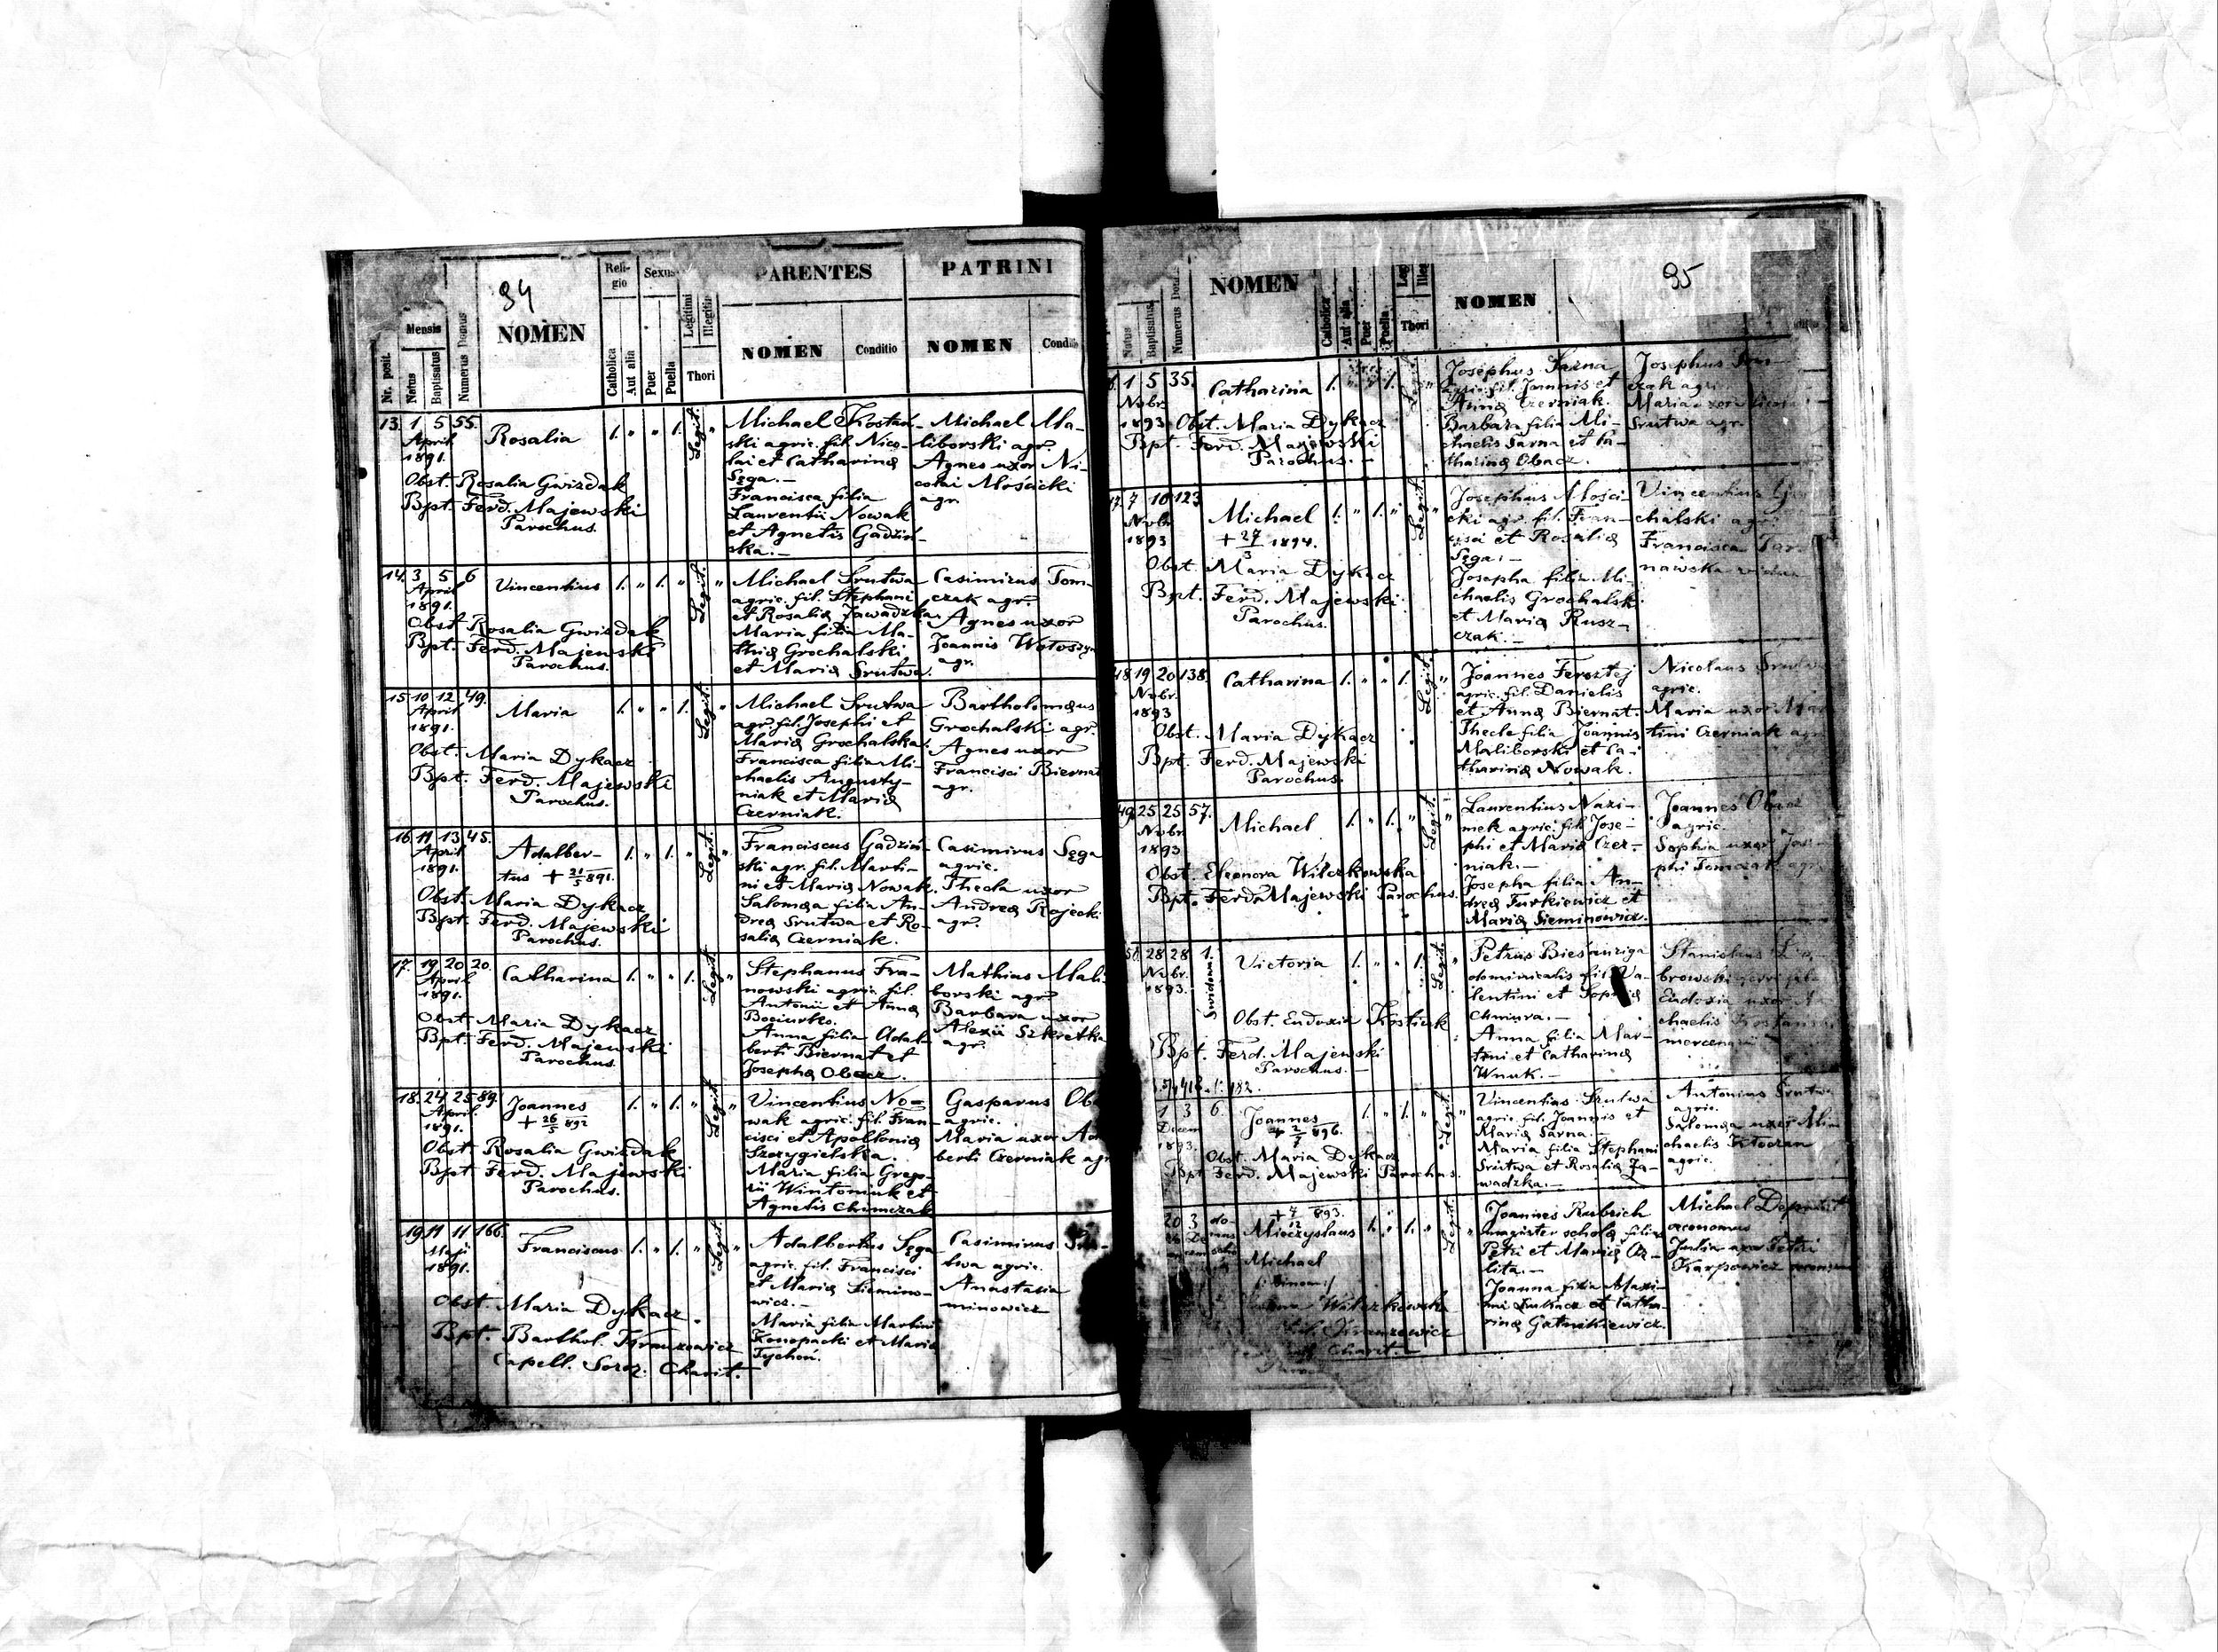 34
Nr. posit.
Mensis
Natus
Baptisatus
Numerus Domus
NOMEN
Reli-
gio
Catholica
Aut alia
Sexus
Puer
Puella
Legitimi
Illegitimi
Thori
PARENTES
NOMEN
Conditio
PATRINI
NOMEN
Conditio
13. 1 5 55.
April
1891.
Rosalia
1. " " 1.
Legit. "
Obst. Rosalia Gwizdak
Bpt. Ferd. Majewski
Parochus.
Michael Kostań-
ski agric. fil. Nico-
lai et Catharinæ
Sęga.-
Francisca filia
Laurentii Nowak
et Agnetis Gadziń-
ska.-
Michael Ma-
liborski agr.
Agnes uxor Ni-
colai Mościcki
agr.
14. 3 5 6
April
1891.
Vincentius
1. " 1. "
Legit. "
Obst. Rosalia Gwizdak
Bpt. Ferd. Majewski
Parochus.
Michael Srutwa
agric. fil. Stephani
et Rosaliæ Zawadzka.
Maria filia Ma-
thiæ Grochalski
et Mariæ Srutwa.
Casimirus Tom-
czak agr.
Agnes uxor
Joannis Wołoszyn
agr.
15. 10 12 49.
April
1891.
Maria
1. " " 1.
Legit. "
Obst. Maria Dykacz
Bpt. Ferd. Majewski
Parochus.
Michael Srutwa
agr. fil. Josephi et
Mariæ Grochalska.
Francisca filia Mi-
chaelis Augusty-
niak et Mariæ
Czerniak.
Bartholomæus
Grochalski agr.
Agnes uxor
Francisci Biernat
agr.
16. 11 13 45.
April
1891.
Adalber-
tus + 21/5 891.
1. " 1. "
Legit. "
Obst. Maria Dykacz
Bpt. Ferd. Majewski
Parochus.
Franciscus Gadziń-
ski agr. fil. Marti-
ni et Mariæ Nowak.
Salomæa filia An-
dreæ Srutwa et Ro-
saliæ Czerniak.
Casimirus Sęga
agric.
Thecla uxor
Andreæ Rojecki
agr.
17. 19 20 20.
April
1891.
Catharina
1. " " 1.
Legit. "
Obst. Maria Dykacz
Bpt. Ferd. Majewski
Parochus.
Stephanus Fra-
nowski agric. fil.
Antonii et Annæ
Bociurko.
Anna filia Adal-
berti Biernat et
Josephæ Obacz.
Mathias Mali-
borski agr.
Barbara uxor
Alexii Szkretka
agr.
18. 24 25 89.
April
1891.
Joannes
+ 26/5 892
1. " 1. "
Legit. "
Obst. Rosalia Gwizdak
Bpt. Ferd. Majewski
Parochus.
Vincentius No-
wak agric. fil. Fran-
cisci et Apolloniæ
Szczygielska.
Maria filia Grego-
rii Wintoniuk et
Agnetis Chimczak
Gasparus
agric.
Maria uxor
berti Czerniak agr.
19. 11 11 166.
Maji
1891.
Franciscus
1. " 1. "
Legit. "
Obst. Maria Dykacz.
Bpt. Barthol.
Capell. Soror. Charit.
Adalbertus Sęga
agric. fil. Francisci
et Mariæ Siemino-
wicz.-
Maria filia Martini
Konopacki et Mariæ
Tychoń.
Casimirus
twa agric.
Anastasia
minowicz
35
Natus
Baptisatus
Numerus Domus
NOMEN
Catholica
Aut alia
Puer
Puella
Thori
NOMEN
1 5 35.
Nvbr.
1893
Catharina
1. 1.
Obst. Maria Dykacz
Bpt. Ferd. Majewski
Parochus.-
Josephus Sarna
agric. fil. Joannis et
Annæ Czerniak.
Barbara filia Mi-
chaelis Sarna et Ca-
tharinæ Obacz.
Josephus
czak agr.
Maria uxor
Srutwa agr.
7 10 123
Nvbr.
1893
Michael
+ 27/3 1894.
1. " 1. "
Legit. "
Obst. Maria Dykacz
Bpt. Ferd. Majewski
Parochus.
Josephus Mości-
cki agr. fil. Fran-
cisci et Rosaliæ
Sęga.-
Josepha filia Mi-
chaelis Grochalski
et Mariæ Rusz-
czak.-
Vincentius
chalski agr.
Francisca
nawska vidua
48 19 20 138.
Nvbr.
1893
Catharina
1. " " 1.
Legit. "
Obst. Maria Dykacz
Bpt. Ferd. Majewski
Parochus.
Joannes Fersztej
agric. fil. Danielis
et Annæ Biernat.
Thecla filia Joannis
Maliborski et Ca-
tharinæ Nowak.
Nicolaus
agric.
Maria uxor
tini Czerniak
49. 25 25 57.
Nvbr.
1893.
Michael
1. " 1. "
Legit. "
Obst. Eleonora Wilczkowska
Bpt. Ferd. Majewski Parochus.
Laurentius Nazi-
mek agric. fil. Jose-
phi et Mariæ Czer-
niak.-
Josepha filia An-
dreæ Turkiewicz et
Mariæ Sieminowicz.
Joannes Obacz
agric.
Sophia uxor
phi Tomczak agr.
50. 28 28 1.
Nvbr.
1893.
Swidowa
Victoria
1. " " 1.
Legit. "
Obst. Eudoxia
Bpt. Ferd. Majewski
Parochus.-
Petrus
dominicalis fil. Va-
lentini et Sophiæ
Chmura.-
Anna filia Mar-
tini et Catharinæ
Wnuk.-
Stanislaus
Eudoxia uxor
chaelis
1 3 6
Decem
1893.
Joannes
1. " 1. "
Legit. "
Obst. Maria Dykacz
Bpt. Ferd. Majewski Parochus.
Vincentius Srutwa
agric. fil. Joannis et
Mariæ Sarna.-
Maria filia Stephani
Srutwa et Rosaliæ Za-
wadzka.-
Antonius Srutwa
agric.
Salomæa uxor Mi-
chaelis
agric.
893.
Mieczyslaus
Michael
1. " 1. "
Legit. "
Wilczkowska
Charit.-
Joannes Kubrich
magister scholæ filius
Petri et Mariæ
lita.-
Joanna filia Maxi-
mi Łukacz et Catha-
rinæ Gatnikiewicz.
Michael
œconomus
Julia uxor Petri
Karpowicz